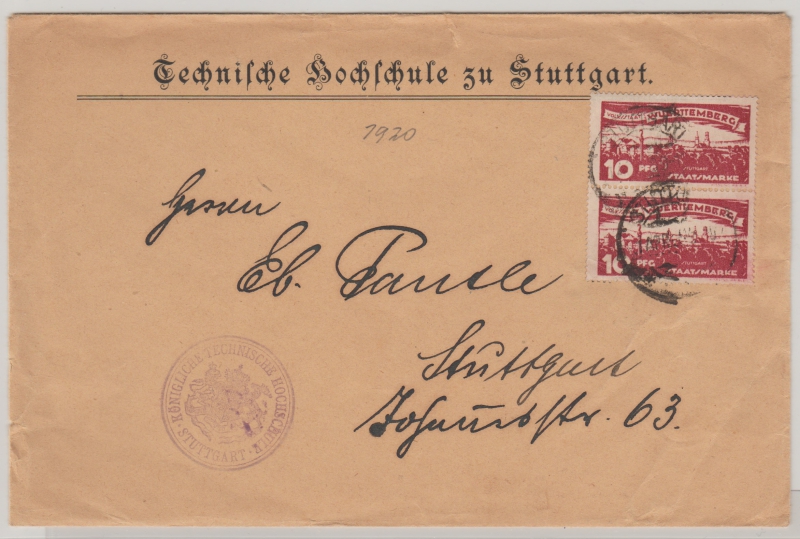 Technische Hochschule zu Stuttgart.
1920
VOLKSSTAAT WÜRTTEMBERG
STUTTGART
10 PFG STAATSMARKE
WÜRTTEMBERG
STUTTGART
10 PFG STAATSMARKE
Herrn
Eb. Pantle
Stuttgart
Johannesstr. 63.
KÖNIGLICHE TECHNISCHE HOCHSCHULE
STUTTGART